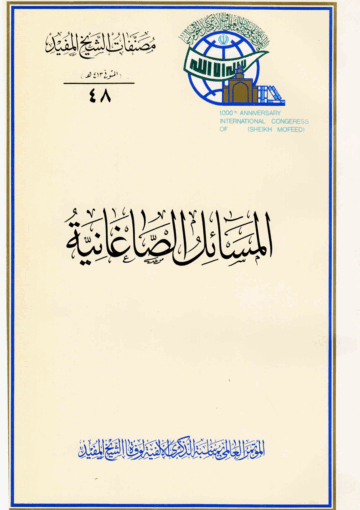 مصنفات الشيخ المفيد
(المتوفى ٤١٣ هـ)
٤٨
1000TH ANNIVERSARY
INTERNATIONAL CONGERESS
OF (SHEIKH MOFEED)
المسائل الصاغانية
المؤتمر العالمي بمناسبة الذكرى الألفية لوفاة الشيخ المفيد